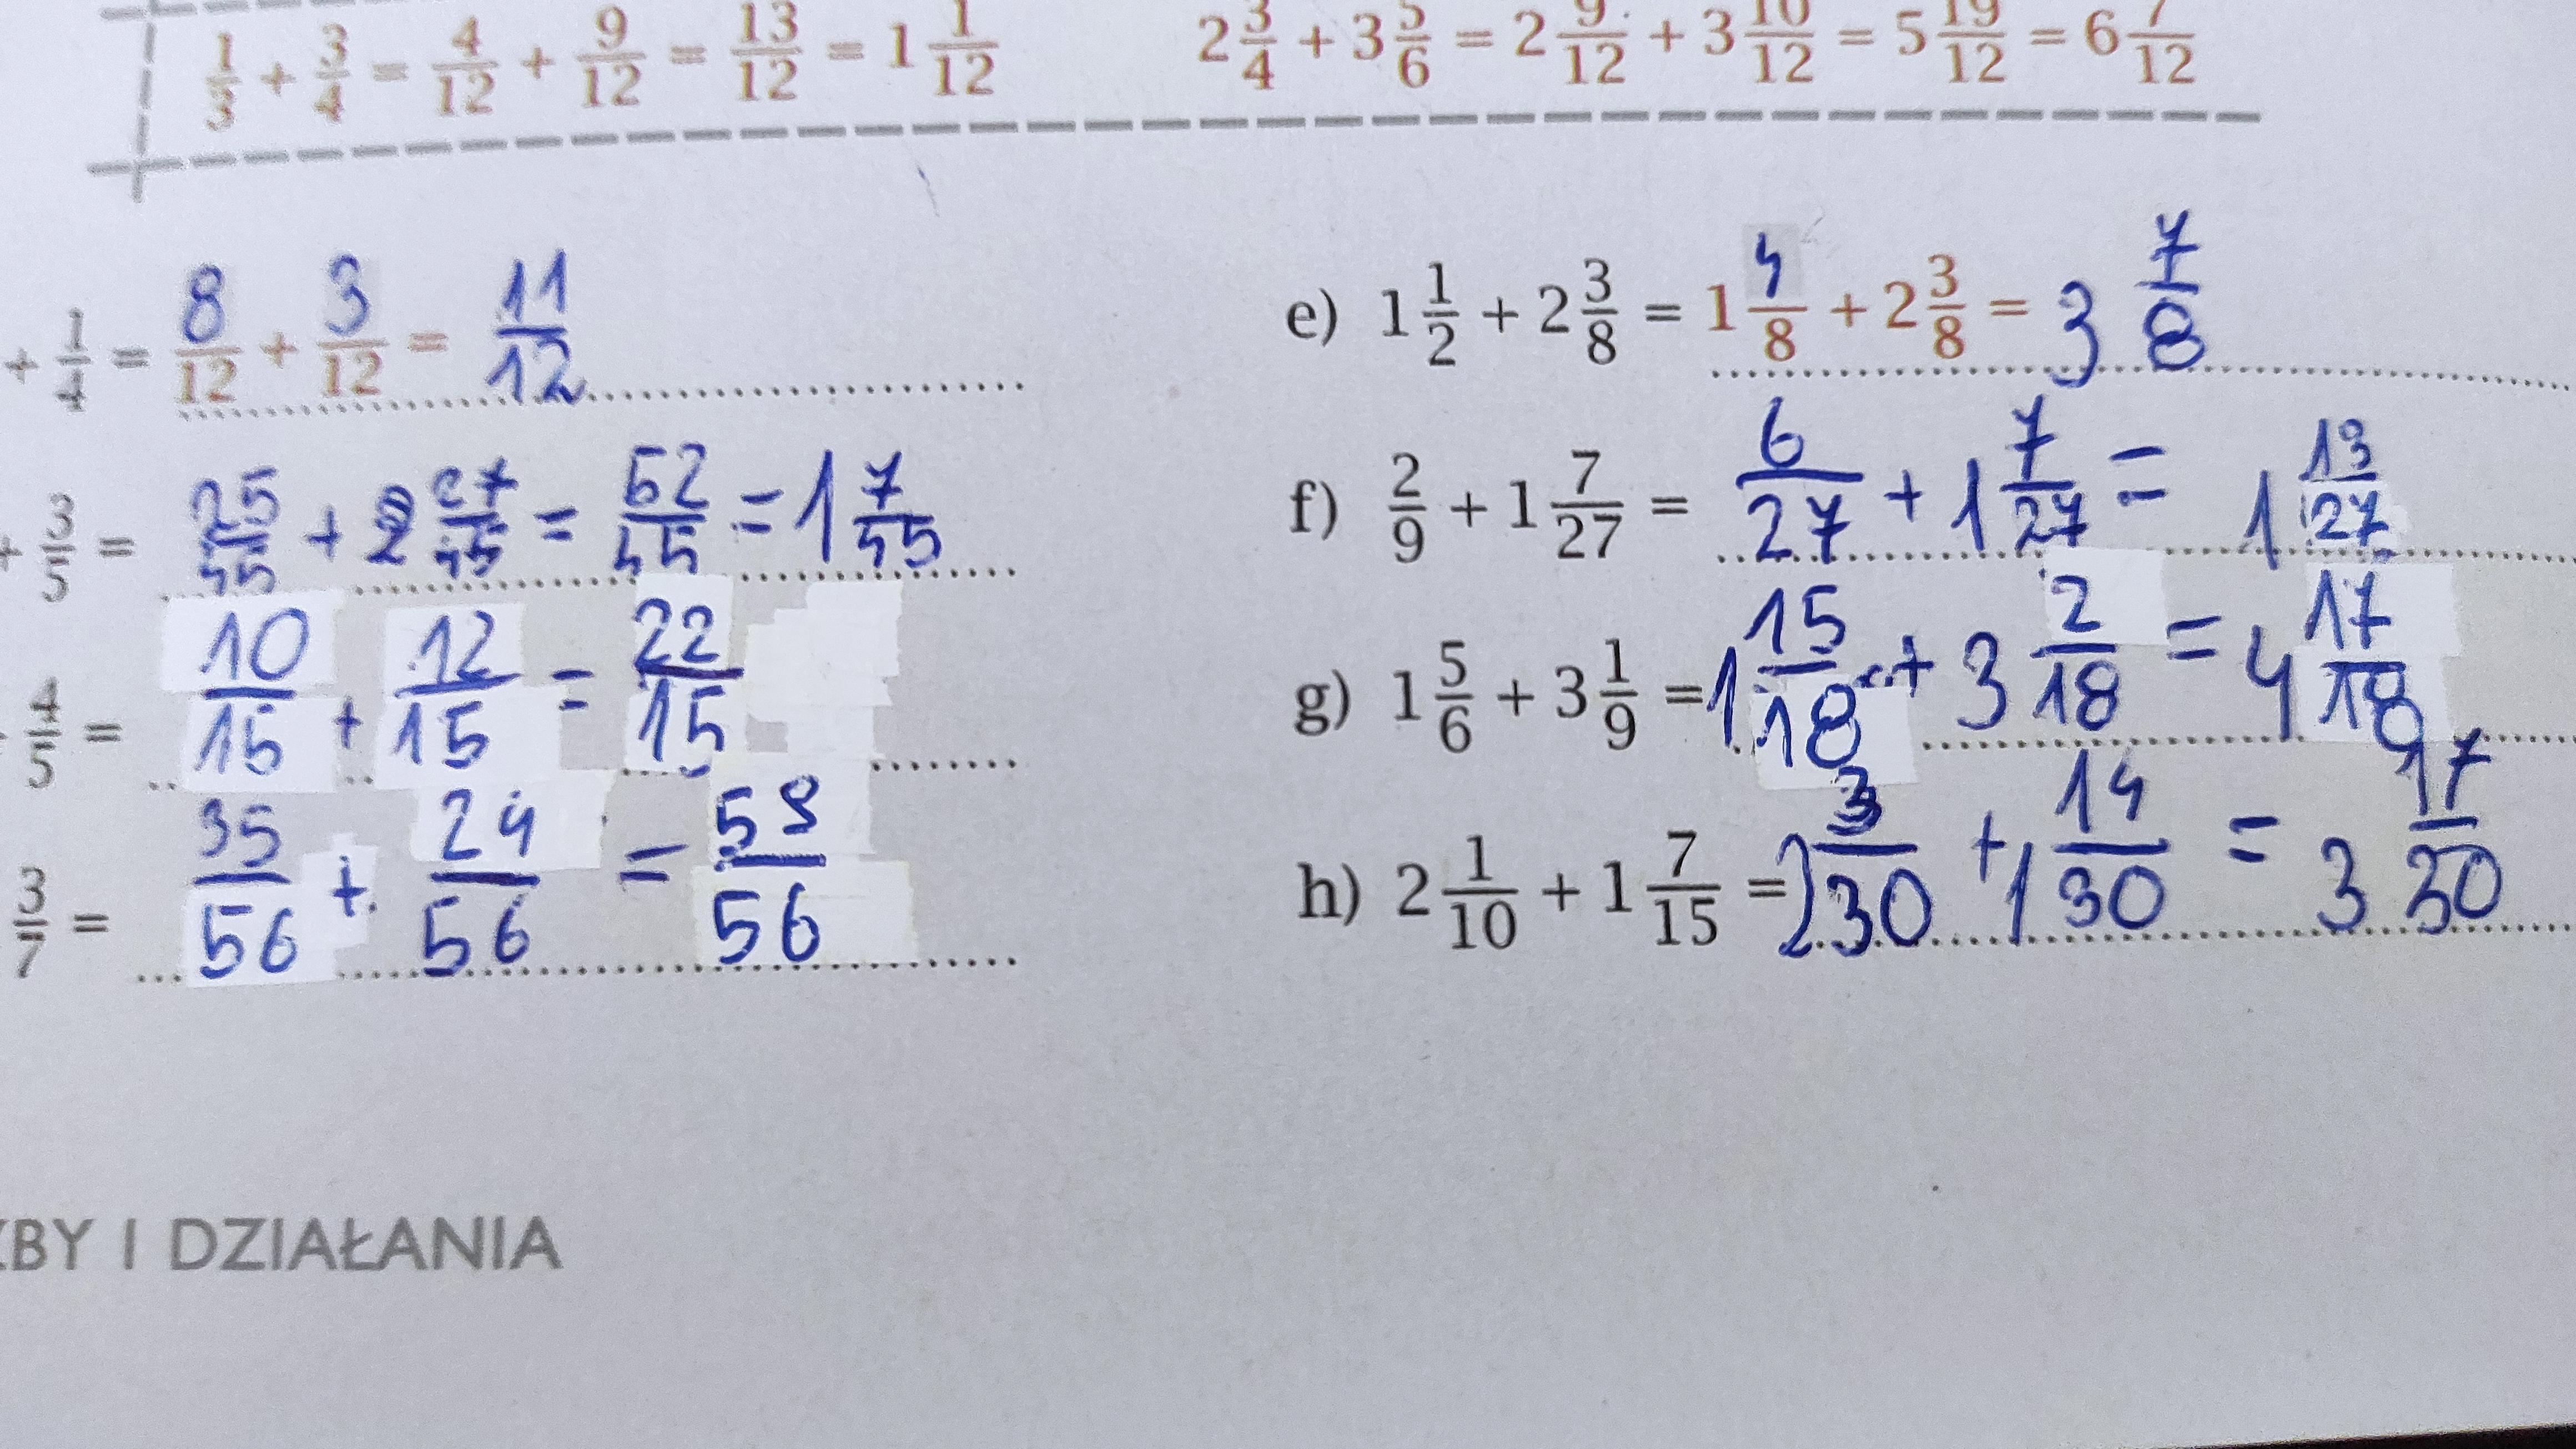 1/3 + 3/4 = 4/12 + 9/12 = 13/12 = 1 1/12
2 3/4 + 3 5/6 = 2 9/12 + 3 10/12 = 5 19/12 = 6 7/12
+ 1/4 = 8/12 + 3/12 = 11/12
+ 3/5 = 25/45 + 27/45 = 52/45 = 1 7/45
4/5 = 10/15 + 12/15 = 22/15
3/7 = 35/56 + 24/56 = 59/56
e) 1 1/2 + 2 3/8 = 1 4/8 + 2 3/8 = 3 7/8
f) 2/9 + 1 7/27 = 6/27 + 1 7/27 = 1 13/27
g) 1 5/6 + 3 1/9 = 1 15/18 + 3 2/18 = 4 17/18
h) 2 1/10 + 1 7/15 = 2 3/30 + 1 14/30 = 3 17/30
BY I DZIAŁANIA